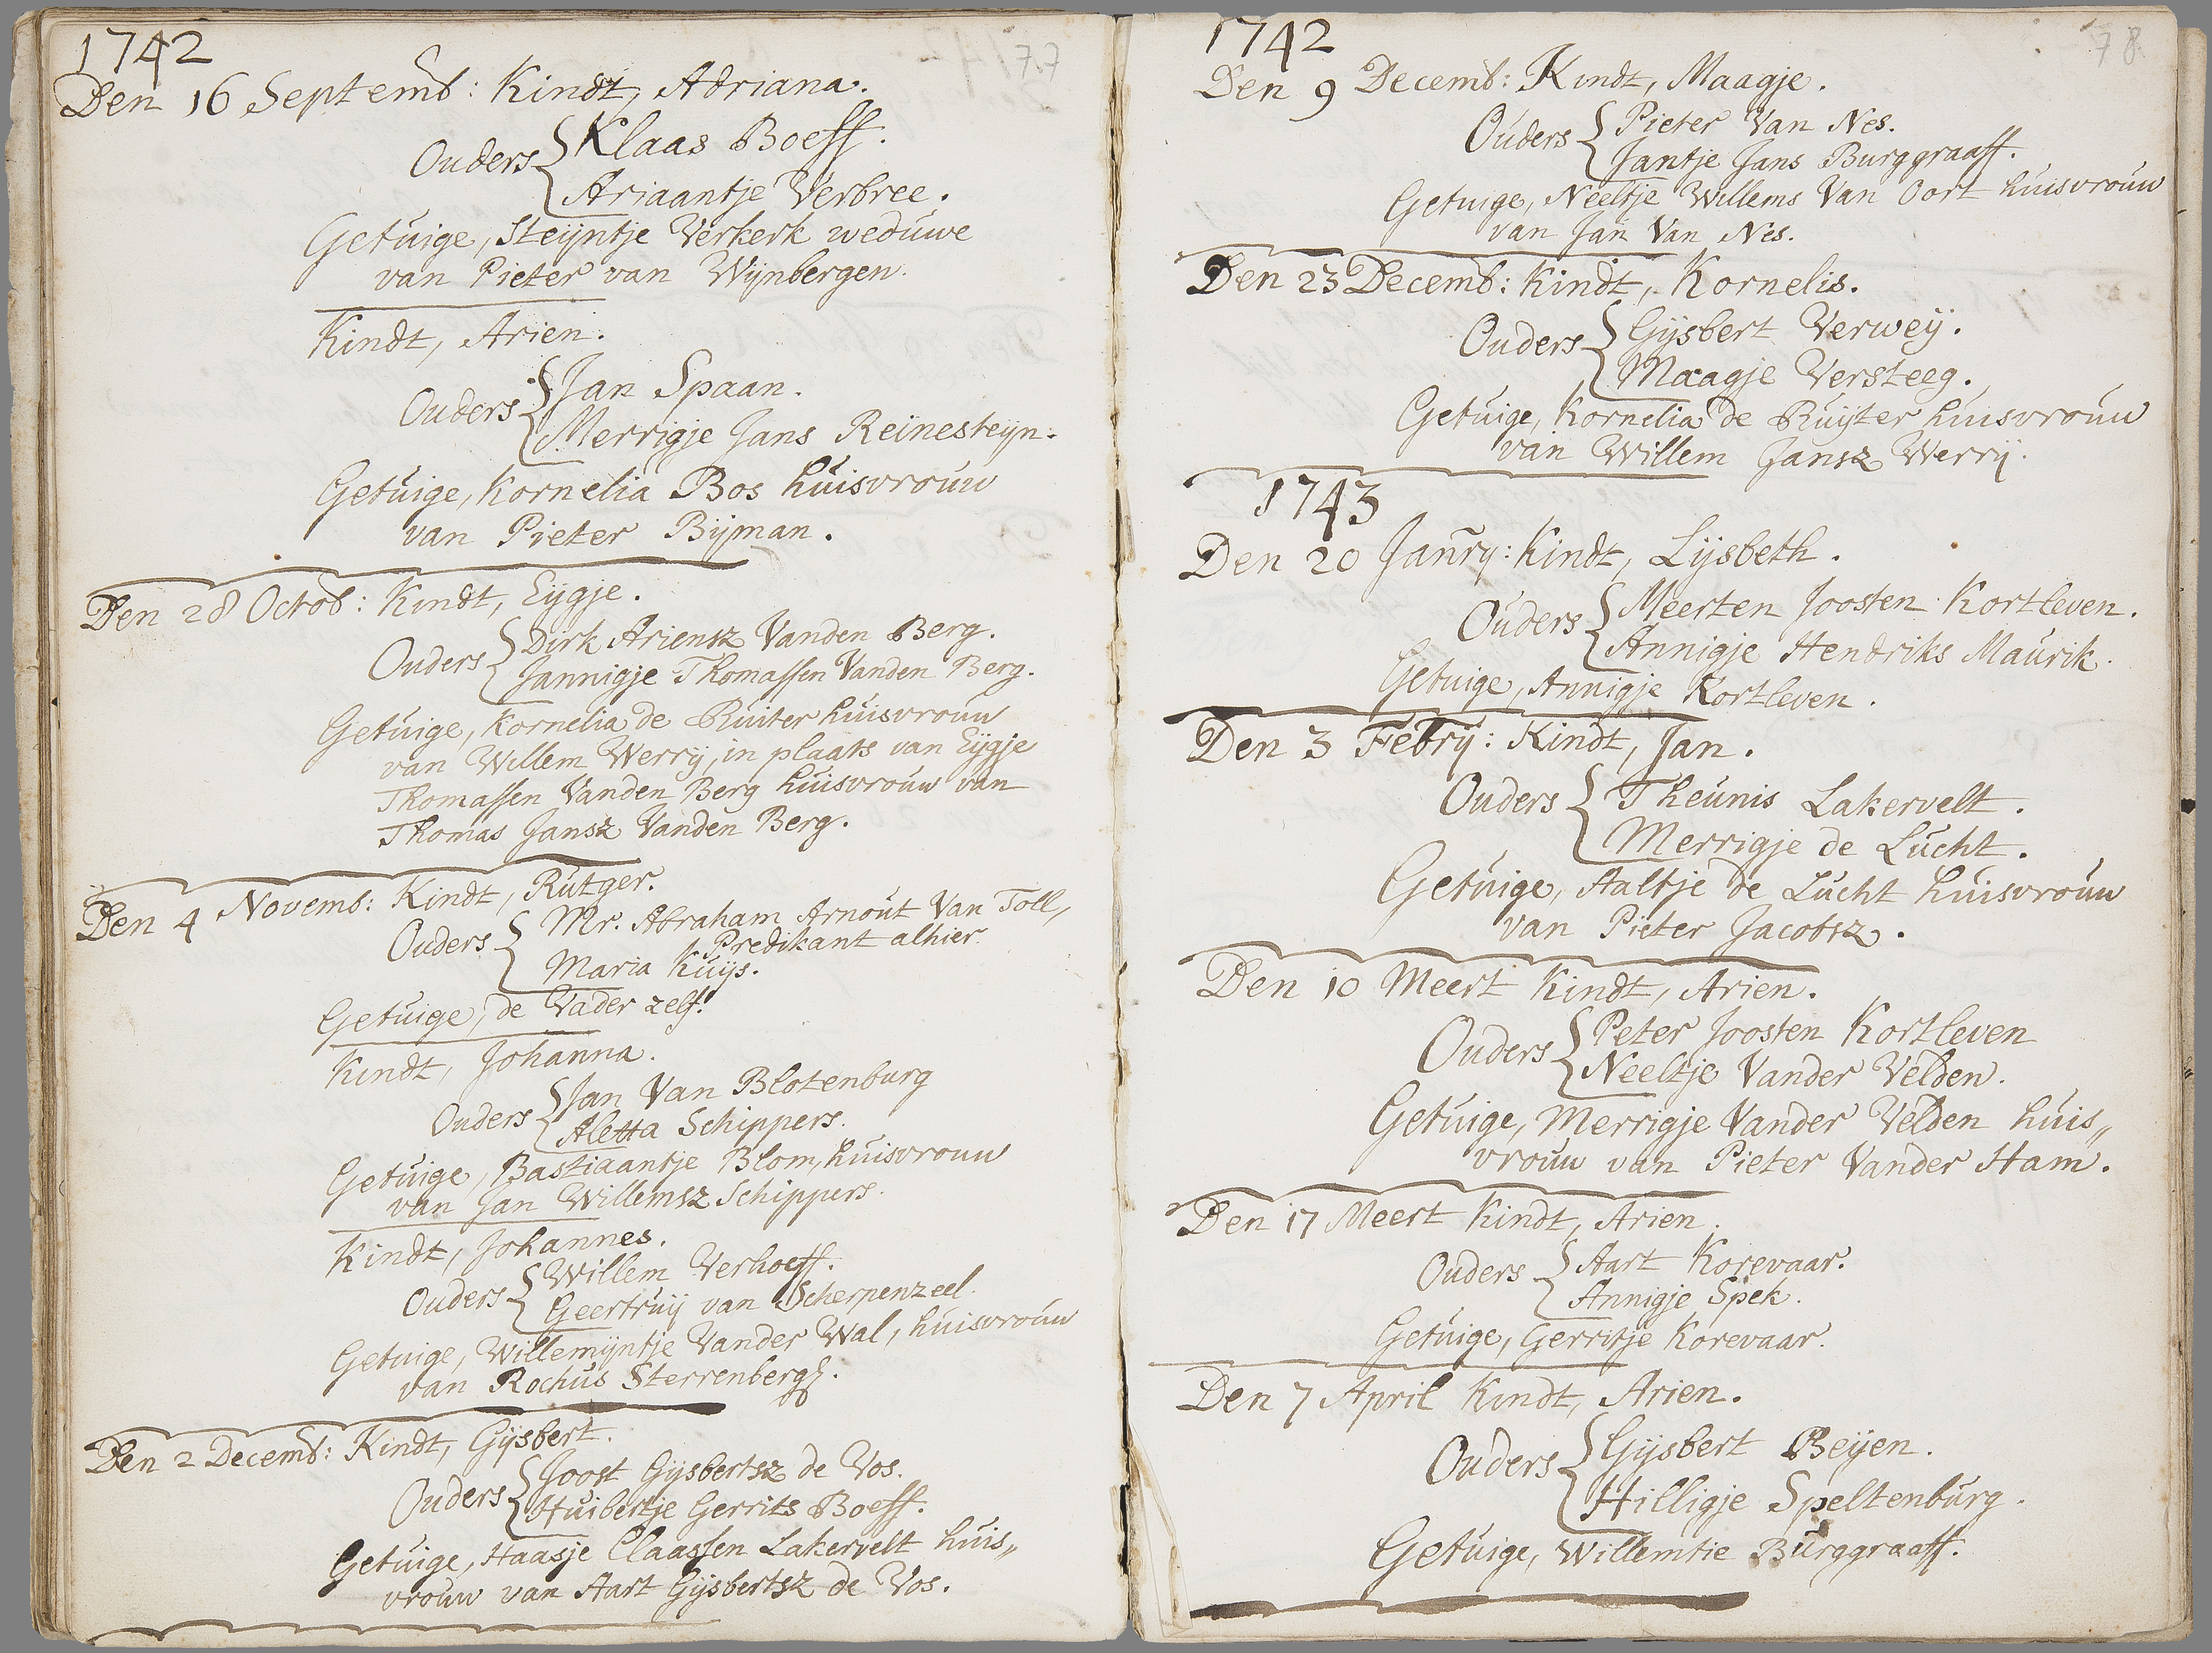 77
1742
Den 16 Septemb: Kindt, Adriana.
Ouders { Klaas Boeff.
Ariaantje Verbree.
Getuige, Steijntje Verkerk weduwe
van Pieter van Wijnbergen.
Kindt, Arien.
Ouders { Jan Spaan.
Merrigje Jans Reinesteijn.
Getuige, Kornelia Bos huisvrouw
van Pieter Bijman.
Den 28 Octob: Kindt, Eijgje.
Ouders { Dirk Ariensz Vanden Berg.
Jannigje Thomassen Vanden Berg.
Getuige, Kornelia de Ruiter huisvrouw
van Willem Werrij, in plaats van Eijgje
Thomassen Vanden Berg huisvrouw van
Thomas Jansz Vanden Berg.
Den 4 Novemb: Kindt, Rutger.
Ouders { Mr. Abraham Arnout Van Toll,,
Predikant alhier.
Maria Kuijs.
Getuige, de Vader zelf.
Kindt, Johanna.
Ouders { Jan Van Blotenburg
Aletta Schippers.
Getuige, Bastiaantje Blom, huisvrouw
van Jan Willemsz Schippers.
Kindt, Johannes.
Ouders { Willem Verhoeff.
Geertruij van Scherpenzeel.
Getuige, Willemijntje Vander Wal, huisvrouw
van Rochus Sterrenberg.
Den 2 Decemb: Kindt, Gijsbert.
Ouders { Joost Gijsbertsz de Vos.
Huibertje Gerrits Boeff.
Getuige, Haasje Claassen Lakervelt huis,,
vrouw van Aart Gijsbertsz de Vos.
78
1742
Den 9 Decemb: Kindt, Maagje.
Ouders { Pieter Van Nes.
Jantje Jans Burggraaff.
Getuige, Neeltje Willems Van Oort huisvrouw
van Jan Van Nes.
Den 23 Decemb: Kindt, Kornelis.
Ouders { Gijsbert Verweij.
Maagje Versteeg.
Getuige, Kornelia de Ruijter huisvrouw
van Willem Jansz Werrij.
1743
Den 20 Janry: Kindt, Lijsbeth.
Ouders { Meerten Joosten Kortleven.
Annigje Hendriks Maurik.
Getuige, Annigje Kortleven.
Den 3 Febrij: Kindt, Jan.
Ouders { Theunis Lakervelt.
Merrigje de Lucht.
Getuige, Aaltje de Lucht huisvrouw
van Pieter Jacobsz.
Den 10 Meert Kindt, Arien.
Ouders { Peter Joosten Kortleven
Neeltje Vander Velden.
Getuige, Merrigje Vander Velden huis,,
vrouw van Pieter Vander Ham.
Den 17 Meert Kindt, Arien.
Ouders { Aart Korevaar.
Annigje Spek.
Getuige, Gerritje Korevaar.
Den 7 April Kindt, Arien.
Ouders { Gijsbert Beijen.
Hilligje Speltenburg.
Getuige, Willemtie Burggraaff.